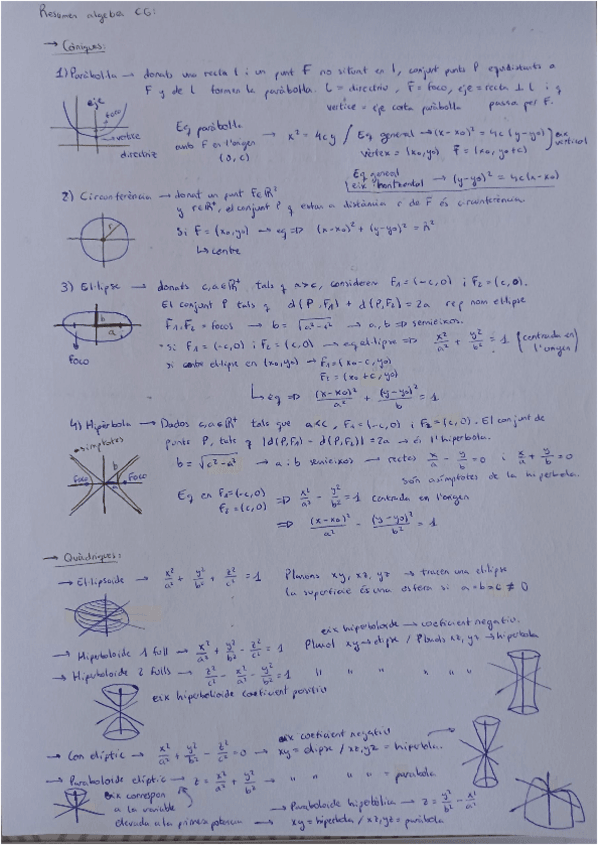 Resumen algebra CG:
→ Còniques:
1) Paràbola → donats una recta l i un punt F no situat en l, conjunt punts P equidistants a
F y de l formen la paràbola. L = directriu, F = foco, eje = recta ⊥ l i q
vèrtice = eje corta paràbola passa per F.
eje
foco
vertice
directriz
Eq paràbola → x² = 4cy / Eq general → (x-x₀)² = 4c (y-y₀) eix
amb F en l'origen vèrtex = (x₀,y₀) F = (x₀, y₀+c) vertical
(0, c)
Eq general
eix horitzontal → (y-y₀)² = 4c(x-x₀)
2) Circunferència → donat un punt F∈ℝ²
y r∈ℝ⁺, el conjunt P q estan a distància r de F és circunferència.
r
Si F = (x₀, y₀) → eq ⇒ (x-x₀)² + (y-y₀)² = r²
↳ centre
3) El·lipse → donats c,a∈ℝ⁺ tals q a>c, considerem F₁ = (-c,0) i F₂ = (c,0).
El conjunt P tals q d(P,F₁) + d(P,F₂) = 2a rep nom el·lipse
b
a
foco
F₁, F₂ = focos → b = √a²-c² → a, b ⇒ semieixos.
·si F₁ = (-c,0) i F₂ = (c,0) → eq el·lipse ⇒ x²/a² + y²/b² = 1 (centrada en l'origen)
si centre el·lipse en (x₀,y₀) → F₁ = (x₀-c, y₀)
F₂ = (x₀+c, y₀)
↳ eq ⇒ (x-x₀)²/a² + (y-y₀)²/b = 1
4) Hipèrbola → Dados c,a∈ℝ⁺ tals que a<c, F₁ = (-c,0) i F₂ = (c,0). El conjunt de
punts P, tals q |d(P,F₁) - d(P,F₂)| = 2a → és l'hiperbola.
asimptotes
foco
b
a
foco
b = √c²-a² → a i b semieixos → rectes x/a - y/b = 0 i x/a + y/b = 0
són asímptotes de la hiperbola.
Eq en F₁=(-c,0) ⇒ x²/a² - y²/b² = 1 centrada en l'origen
F₂ = (c,0)
⇒ (x-x₀)²/a² - (y-y₀)²/b² = 1
→ Quàdriques:
→ El·lipsoide → x²/a² + y²/b² + z²/c² = 1 Planons xy, xz, yz → tracen una el·lipse
La superficie és una esfera si a=b=c ≠ 0
eix hiperboloide → coeficient negatiu.
→ Hiperboloide 1 full → x²/a² + y²/b² - z²/c² = 1 Planol xy → elipse / Planols xz, yz → hiperbola
→ Hiperboloide 2 fulls → z²/c² - x²/a² - y²/b² = 1 " " " " "
eix hiperboloide coeficient positiu
eix coeficient negatiu
→ Con elíptic → x²/a² + y²/b² - z²/c² = 0 → xy = elipse / xz, yz = hiperbola.
→ Paraboloide elíptic → z = x²/a² + y²/b² → " " " " = parabola
Eix correspon
a la variable
elevada a la primera potencia
→ Paraboloide hiperbòlic → z = y²/b² - x²/a²
→ xy = hiperbola / xz, yz = paràbola